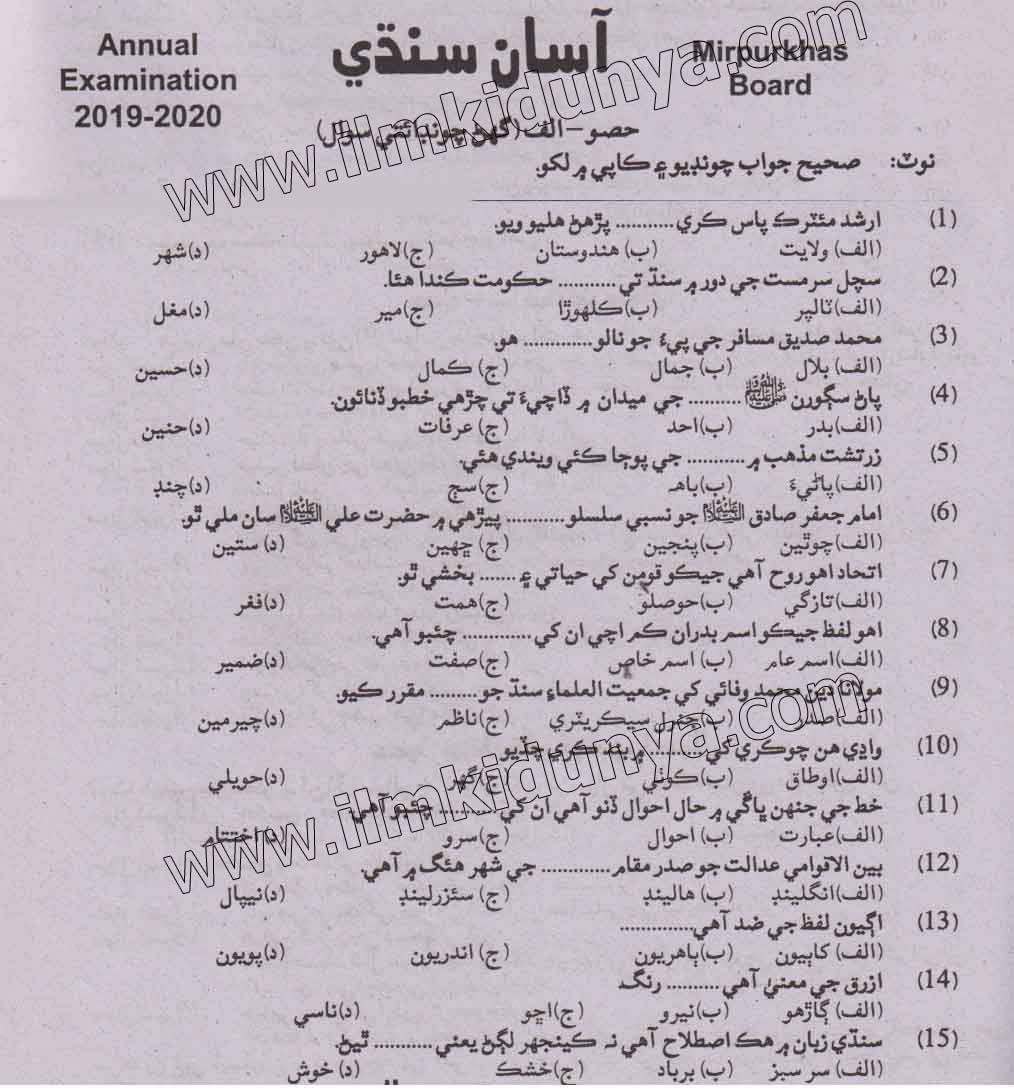 Annual
Examination
2019-2020
آسان سنڌي
Mirpurkhas
Board
حصو – الف (گهڻ چونڊائتي سوال)
نوٽ: صحيح جواب چونڊيو ۽ ڪاپي ۾ لکو.
(1) ارشد مئٽرڪ پاس ڪري ........... پڙهڻ هليو ويو.
(الف) ولايت (ب) هندوستان (ج) لاهور (د) شهر
(2) سچل سرمست جي دور ۾ سنڌ تي ........... حڪومت ڪندا هئا.
(الف) ٽالپر (ب) ڪلهوڙا (ج) مير (د) مغل
(3) محمد صديق مسافر جي پيءُ جو نالو ............ هو.
(الف) بلال (ب) جمال (ج) ڪمال (د) حسين
(4) پاڻ سڳورن ﷺ .......... جي ميدان ۾ ڏاچيءَ تي چڙهي خطبو ڏنائون.
(الف) بدر (ب) احد (ج) عرفات (د) حنين
(5) زرتشت مذهب ۾ ........... جي پوڄا ڪئي ويندي هئي.
(الف) پاڻيءَ (ب) باهه (ج) سج (د) چنڊ
(6) امام جعفر صادق عليه السلام جو نسبي سلسلو ........... پيڙهي ۾ حضرت علي عليه السلام سان ملي ٿو.
(الف) چوٿين (ب) پنجين (ج) ڇهين (د) ستين
(7) اتحاد اهو روح آهي جيڪو قومن کي حياتي ۽ ....... بخشي ٿو.
(الف) تازگي (ب) حوصلو (ج) همت (د) فخر
(8) اهو لفظ جيڪو اسم بدران ڪم اچي ان کي ............ چئبو آهي.
(الف) اسم عام (ب) اسم خاص (ج) صفت (د) ضمير
(9) مولانا دين محمد وفائي کي جمعيت العلماءِ سنڌ جو ......... مقرر ڪيو.
(الف) صدر (ب) جنرل سيڪريٽري (ج) ناظم (د) چيرمين
(10) واڍي هن ڇوڪري کي .......... ۾ بند ڪري ڇڏيو
(الف) اوطاق (ب) ڪوٺي (ج) گهر (د) حويلي
(11) خط جي جنهن ڀاڱي ۾ حال احوال ڏنو آهي ان کي .......... چئبو آهي.
(الف) عبارت (ب) احوال (ج) سرو (د) اختتام
(12) بين الاقوامي عدالت جو صدر مقام ............ جي شهر هئگ ۾ آهي.
(الف) انگلينڊ (ب) هالينڊ (ج) سئزرلينڊ (د) نيپال
(13) اڳيون لفظ جي ضد آهي .............
(الف) کاٻيون (ب) ٻاهريون (ج) اندريون (د) پويون
(14) ازرق جي معنيٰ آهي .......... رنگ
(الف) ڳاڙهو (ب) نيرو (ج) اڇو (د) ناسي
(15) سنڌي زبان ۾ هڪ اصطلاح آهي نہ ڪينجهر لڳڻ يعني ........... ٿيڻ.
(الف) سرسبز (ب) برباد (ج) خشڪ (د) خوش
www.ilmkidunya.com
www.ilmkidunya.com